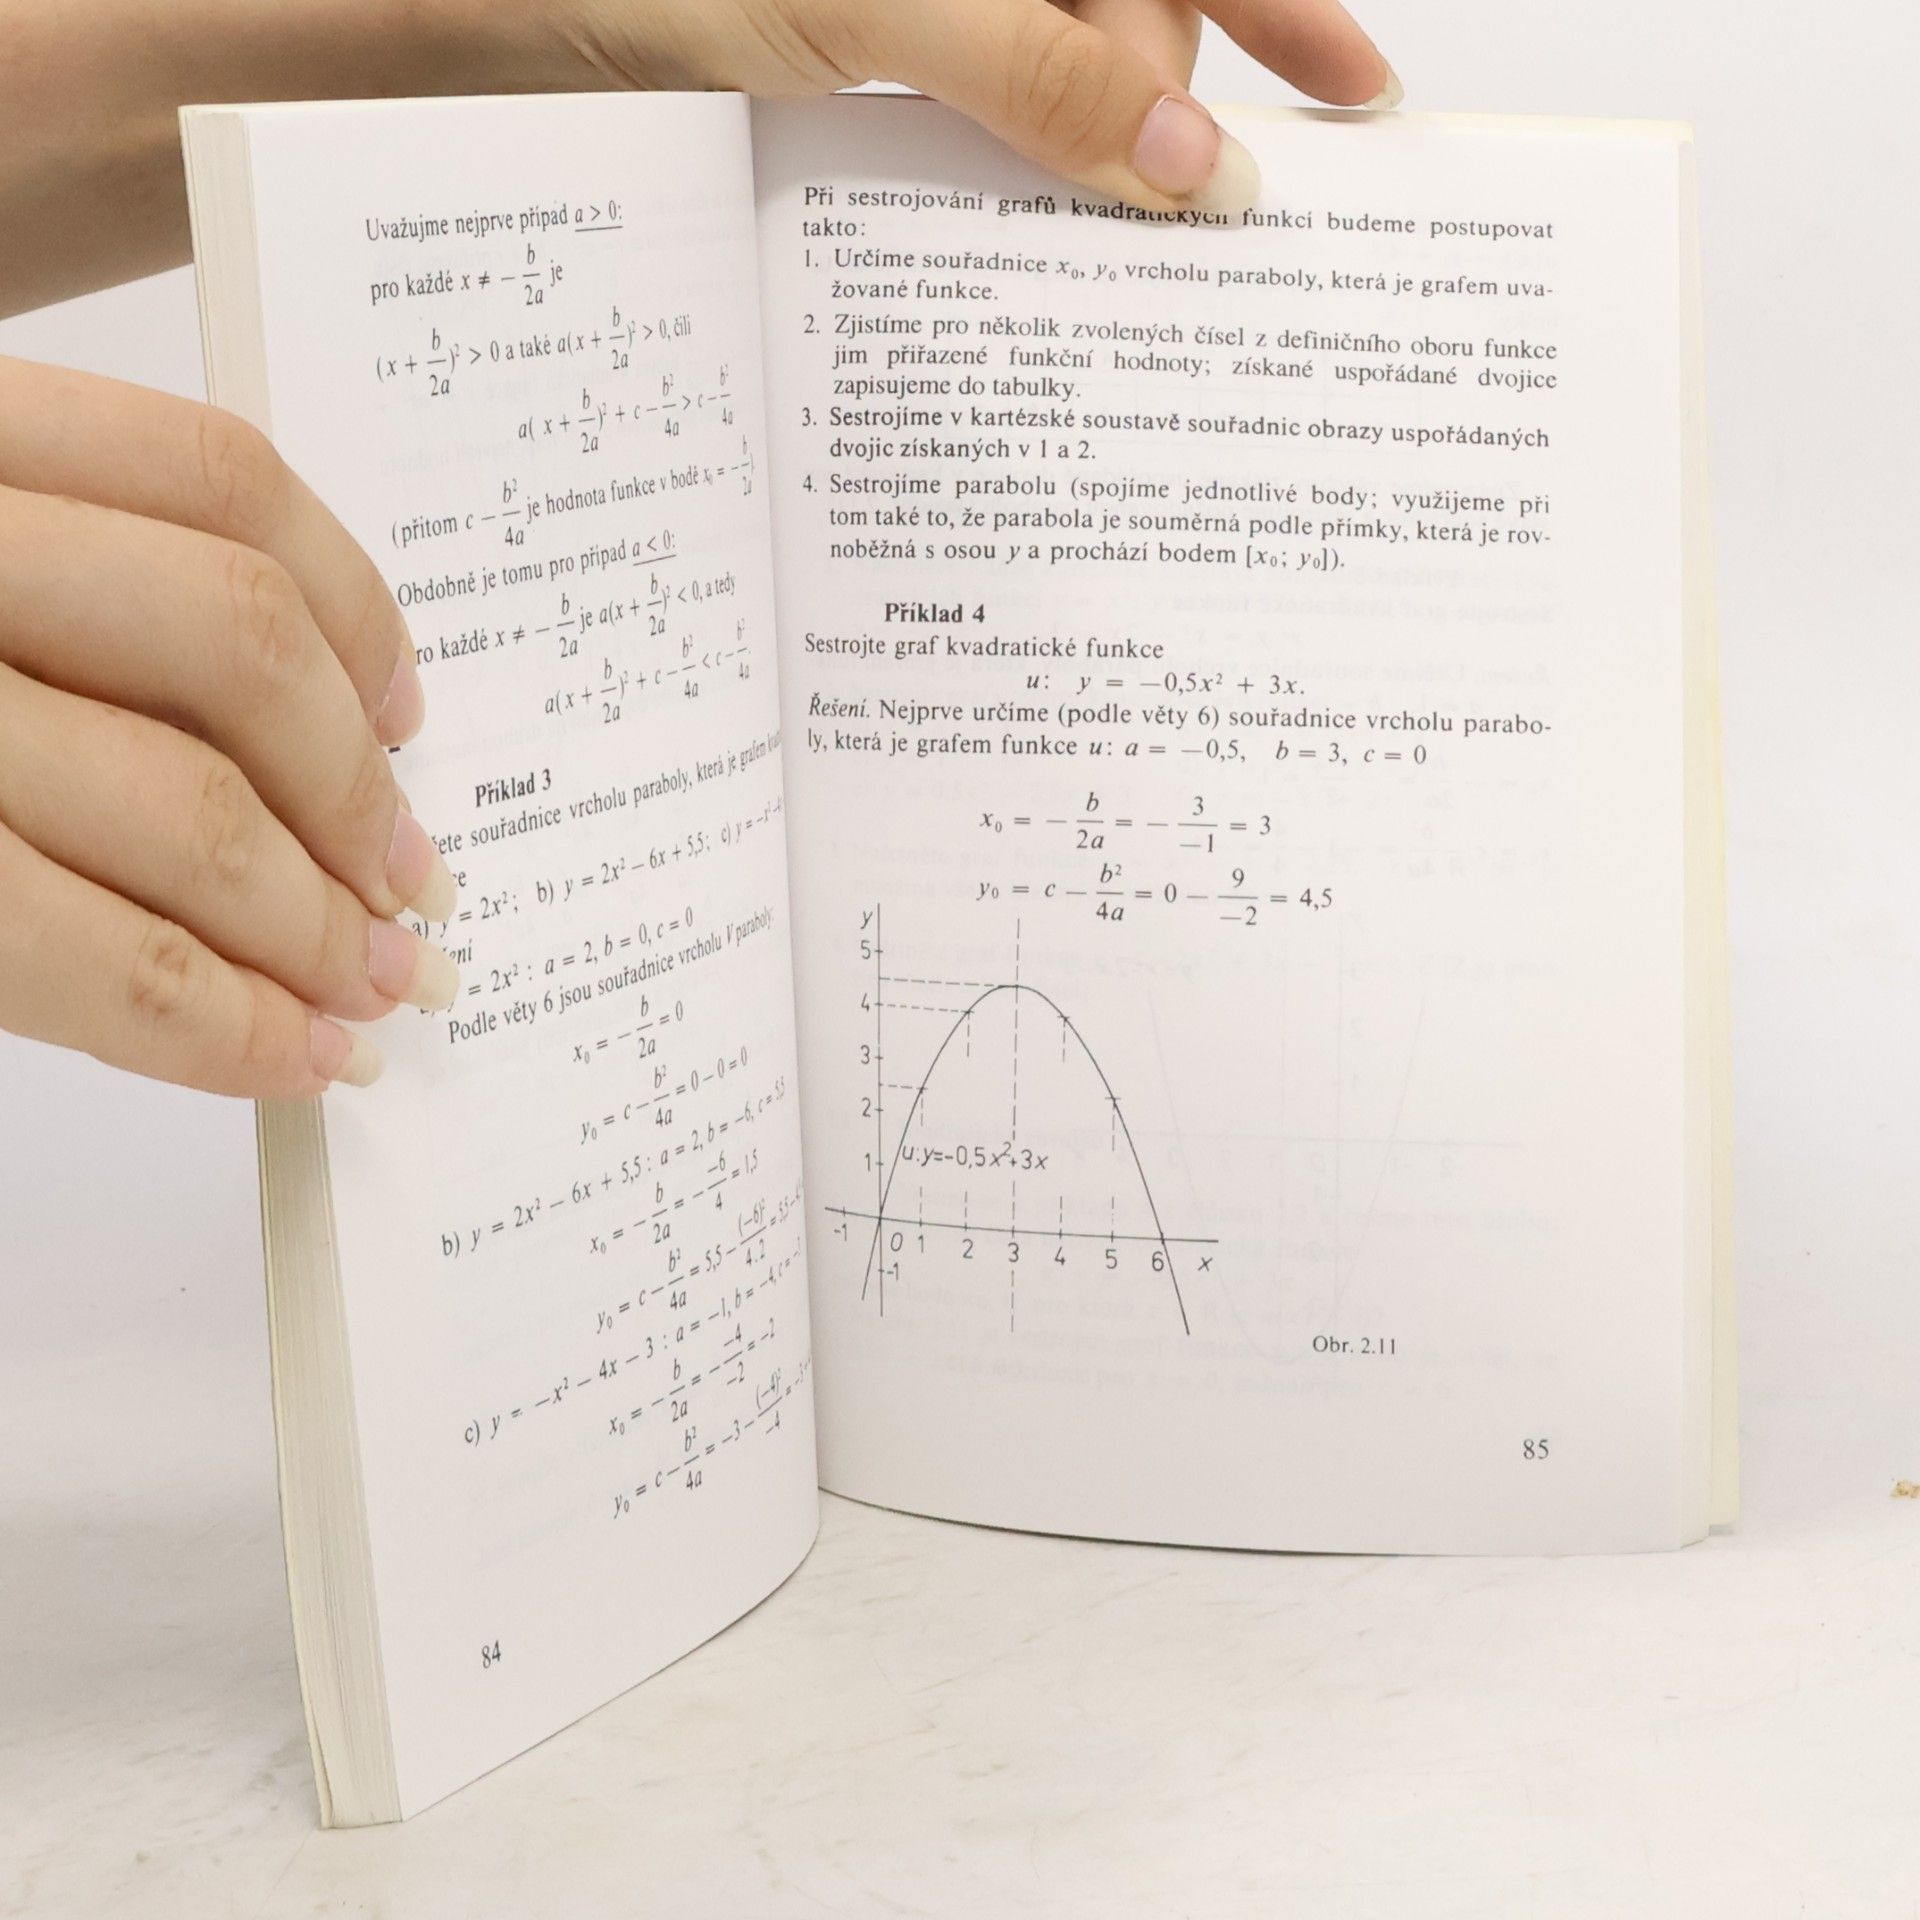 Uvažujme nejprve případ a > 0:
pro každé x ≠ − b/2a je
(x + b/2a)² > 0 a také a(x + b/2a)² > 0, čili
a( x + b/2a)² + c − b²/4a > c − b²/4a
(přitom c − b²/4a je hodnota funkce v bodě x₀ = − b/2a).
Obdobně je tomu pro případ a < 0:
ro každé x ≠ − b/2a je a(x + b/2a)² < 0, a tedy
a(x + b/2a)² + c − b²/4a < c − b²/4a.
Příklad 3
souřadnice vrcholu paraboly, která je grafem
a) y = 2x²; b) y = 2x² − 6x + 5,5; c) y = −x² − 4
y = 2x² : a = 2, b = 0, c = 0
Podle věty 6 jsou souřadnice vrcholu V paraboly:
x₀ = − b/2a = 0
y₀ = c − b²/4a = 0 − 0 = 0
b) y = 2x² − 6x + 5,5 : a = 2, b = −6, c = 5,5
x₀ = − b/2a = − −6/4 = 1,5
y₀ = c − b²/4a = 5,5 − (−6)²/4.2 = 5,5 − 4,5
c) y = −x² − 4x − 3 : a = −1, b = −4, c = −3
x₀ = − b/2a = − −4/−2 = −2
y₀ = c − b²/4a = −3 − (−4)²/−4 = −3
84
Při sestrojování grafů kvadratických funkcí budeme postupovat
takto:
1. Určíme souřadnice x₀, y₀ vrcholu paraboly, která je grafem uva-
žované funkce.
2. Zjistíme pro několik zvolených čísel z definičního oboru funkce
jim přiřazené funkční hodnoty; získané uspořádané dvojice
zapisujeme do tabulky.
3. Sestrojíme v kartézské soustavě souřadnic obrazy uspořádaných
dvojic získaných v 1 a 2.
4. Sestrojíme parabolu (spojíme jednotlivé body; využijeme při
tom také to, že parabola je souměrná podle přímky, která je rov-
noběžná s osou y a prochází bodem [x₀; y₀]).
Příklad 4
Sestrojte graf kvadratické funkce
u: y = −0,5x² + 3x.
Řešení. Nejprve určíme (podle věty 6) souřadnice vrcholu parabo-
ly, která je grafem funkce u: a = −0,5, b = 3, c = 0
x₀ = − b/2a = − 3/−1 = 3
y₀ = c − b²/4a = 0 − 9/−2 = 4,5
y
5
4
3
2
1
u:y=-0,5x²+3x
-1 0 1 2 3 4 5 6 x
-1
Obr. 2.11
85